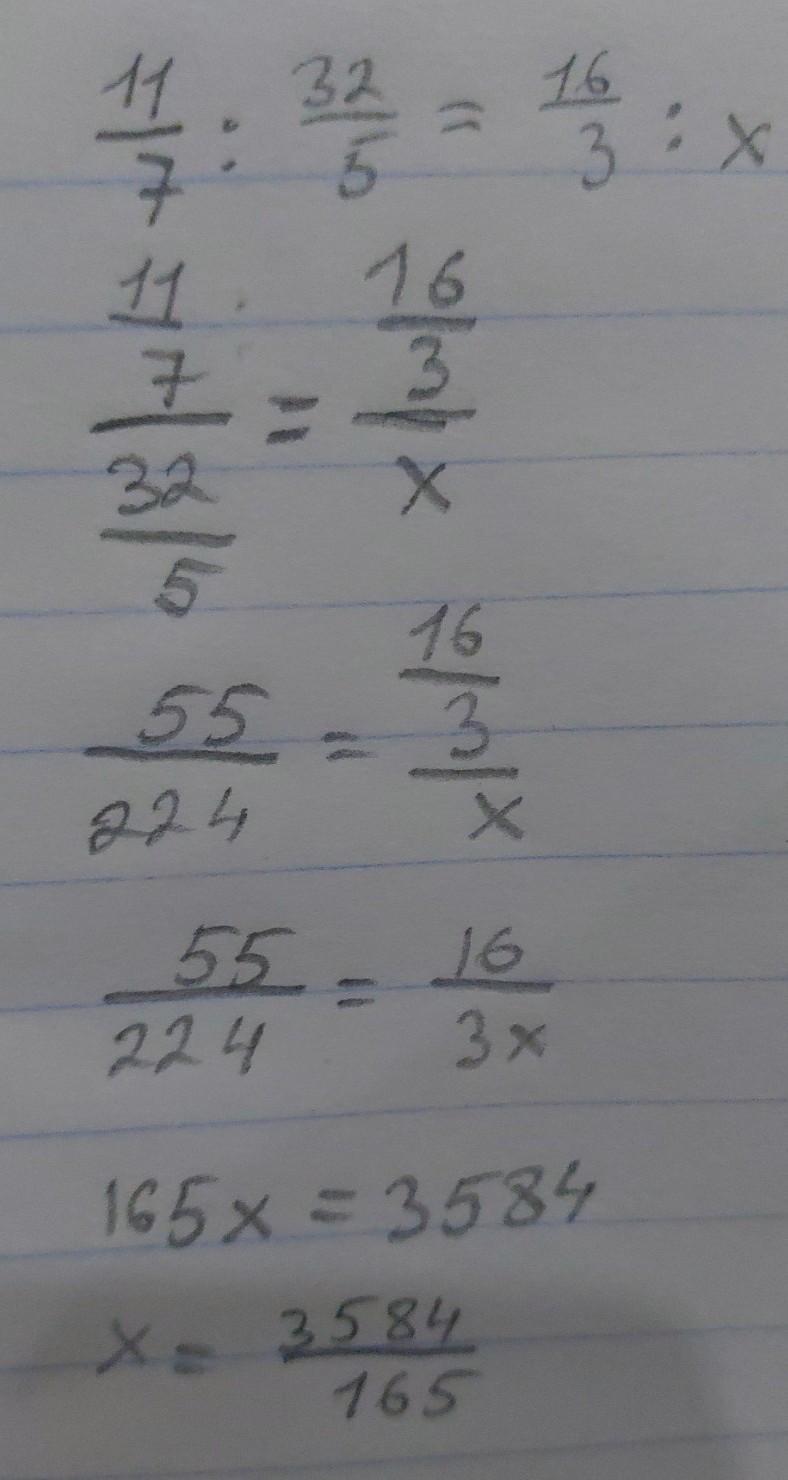 11/7 : 32/5 = 16/3 : x
(11/7)/(32/5) = (16/3)/x
55/224 = (16/3)/x
55/224 = 16/3x
165x = 3584
x = 3584/165